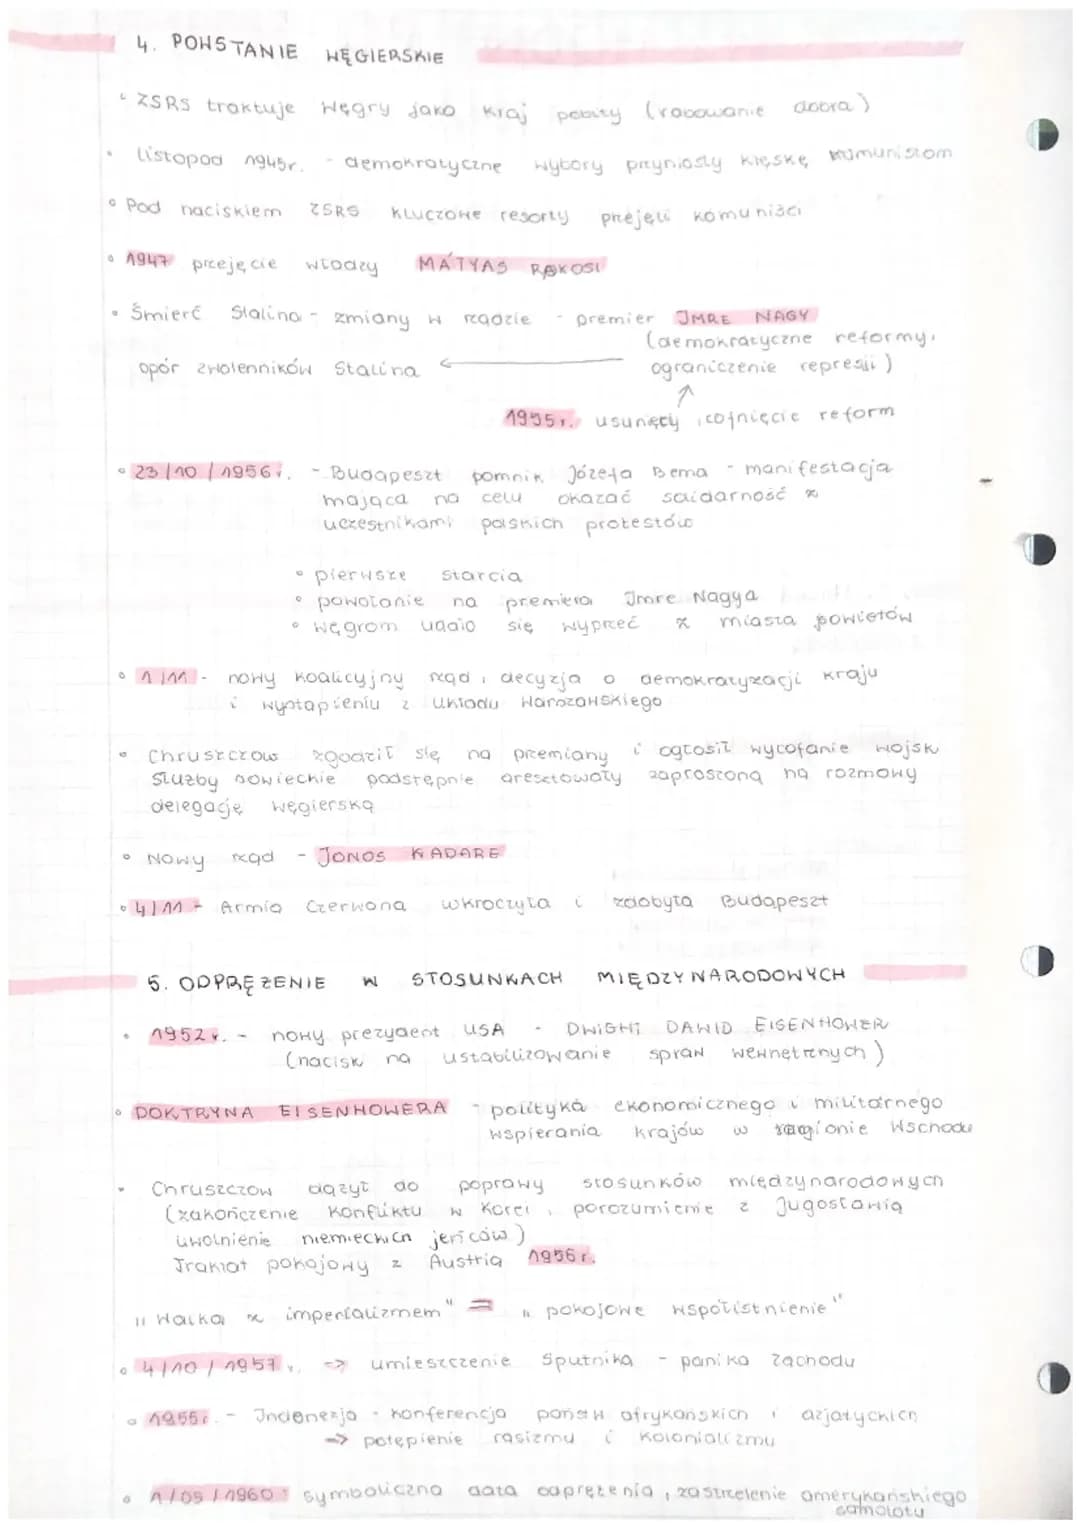 4. POWSTANIE WĘGIERSKIE
ZSRS traktuje Węgry jako kraj pobity (rabowanie dobra)
listopad 1945r. - demokratyczne wybory przyniosły klęskę komunistom
Pod naciskiem ZSRS kluczowe resorty przejęli komuniści
1947 przejęcie władzy MATYAS RAKOSI
Śmierć Stalina - zmiany w rządzie - premier IMRE NAGY
(demokratyczne reformy,
opór zwolenników Stalina ← ograniczenie represji)
↑
1955r. usunięty, cofnięcie reform
23/10/1956r. - Budapeszt pomnik Józefa Bema - manifestacja
mająca na celu okazać solidarność z
uczestnikami polskich protestów
pierwsze starcia
powołanie na premiera Imre Nagya
węgrom udało się wyprzeć z miasta sowietów
1/11 - nowy koalicyjny rząd, decyzja o demokratyzacji kraju
i wystąpieniu z Układu Warszawskiego
Chruszczow zgodził się na przemiany i ogłosił wycofanie wojsk
Służby sowieckie podstępnie aresztowały zaproszoną na rozmowy
delegację węgierską
Nowy rząd - JONOS KADARE
4/11 - Armia Czerwona wkroczyła i zdobyła Budapeszt
5. ODPRĘŻENIE W STOSUNKACH MIĘDZYNARODOWYCH
1952r. - nowy prezydent USA - DWIGHT DAWID EISENHOWER
(nacisk na ustabilizowanie spraw wewnętrznych)
DOKTRYNA EISENHOWERA - polityka ekonomicznego i militarnego
wspierania krajów w regionie Wschodu
Chruszczow dążył do poprawy stosunków międzynarodowych
(zakończenie konfliktu w Korei, porozumienie z Jugosławią
uwolnienie niemieckich jeńców)
Traktat pokojowy z Austrią 1956r.
"Walka z imperializmem" = "pokojowe współistnienie"
4/10/1957r. => umieszczenie Sputnika - panika zachodu
1955r. - Indonezja - konferencja państw afrykańskich i azjatyckich
=> potępienie rasizmu i kolonializmu
1/05/1960: symboliczna data odprężenia, zastrzelenie amerykańskiego
samolotu